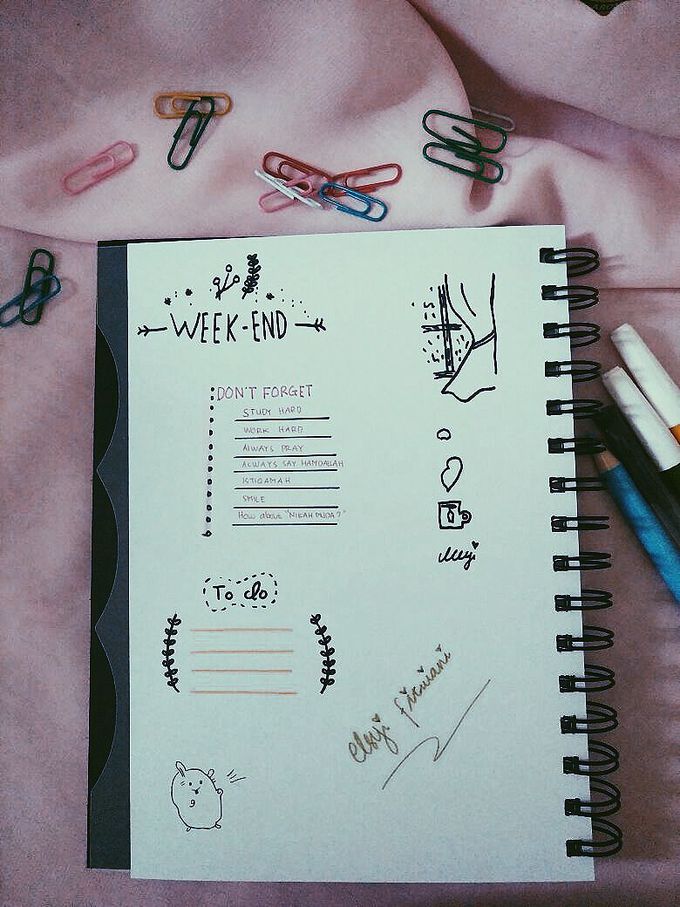 WEEK-END
DON'T FORGET
STUDY HARD
WORK HARD
ALWAYS PRAY
ALWAYS SAY HAMDALLAH
ISTIQAMAH
SMILE
How about "NIKAH MUDA?"
To do